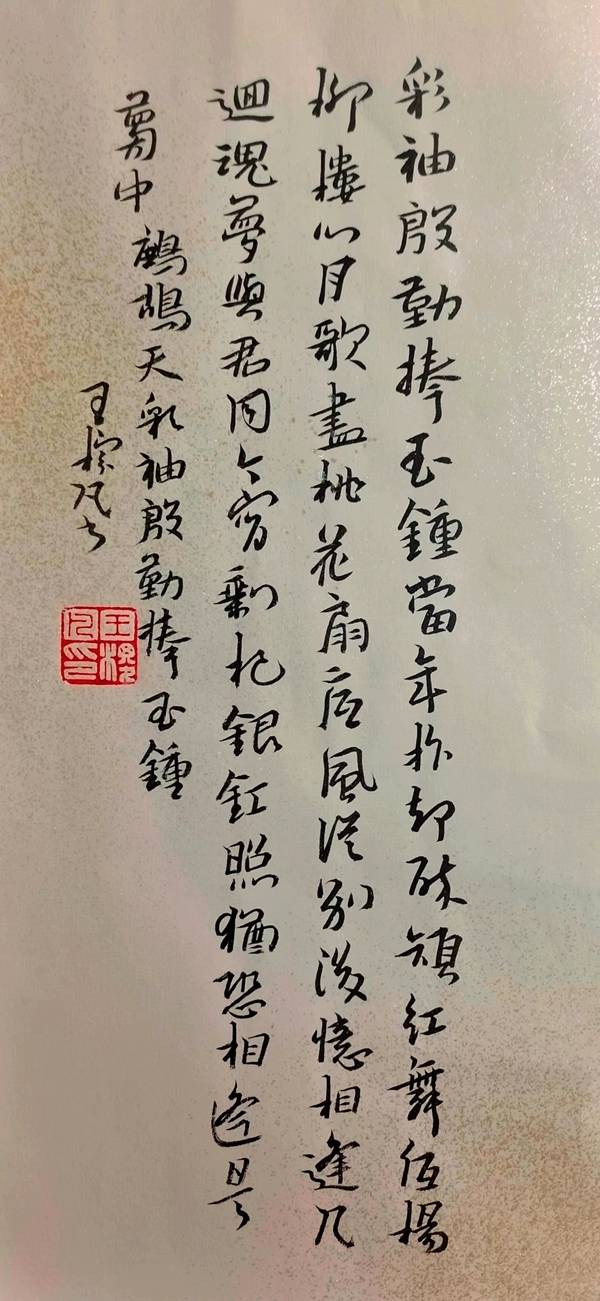 彩袖殷勤捧玉鍾當年拚却醉顏紅舞低楊
柳樓心月歌盡桃花扇底風從別後憶相逢几
迴魂夢與君同今宵剩把銀釭照猶恐相逢是
夢中 鷓鴣天彩袖殷勤捧玉鍾
王凡书